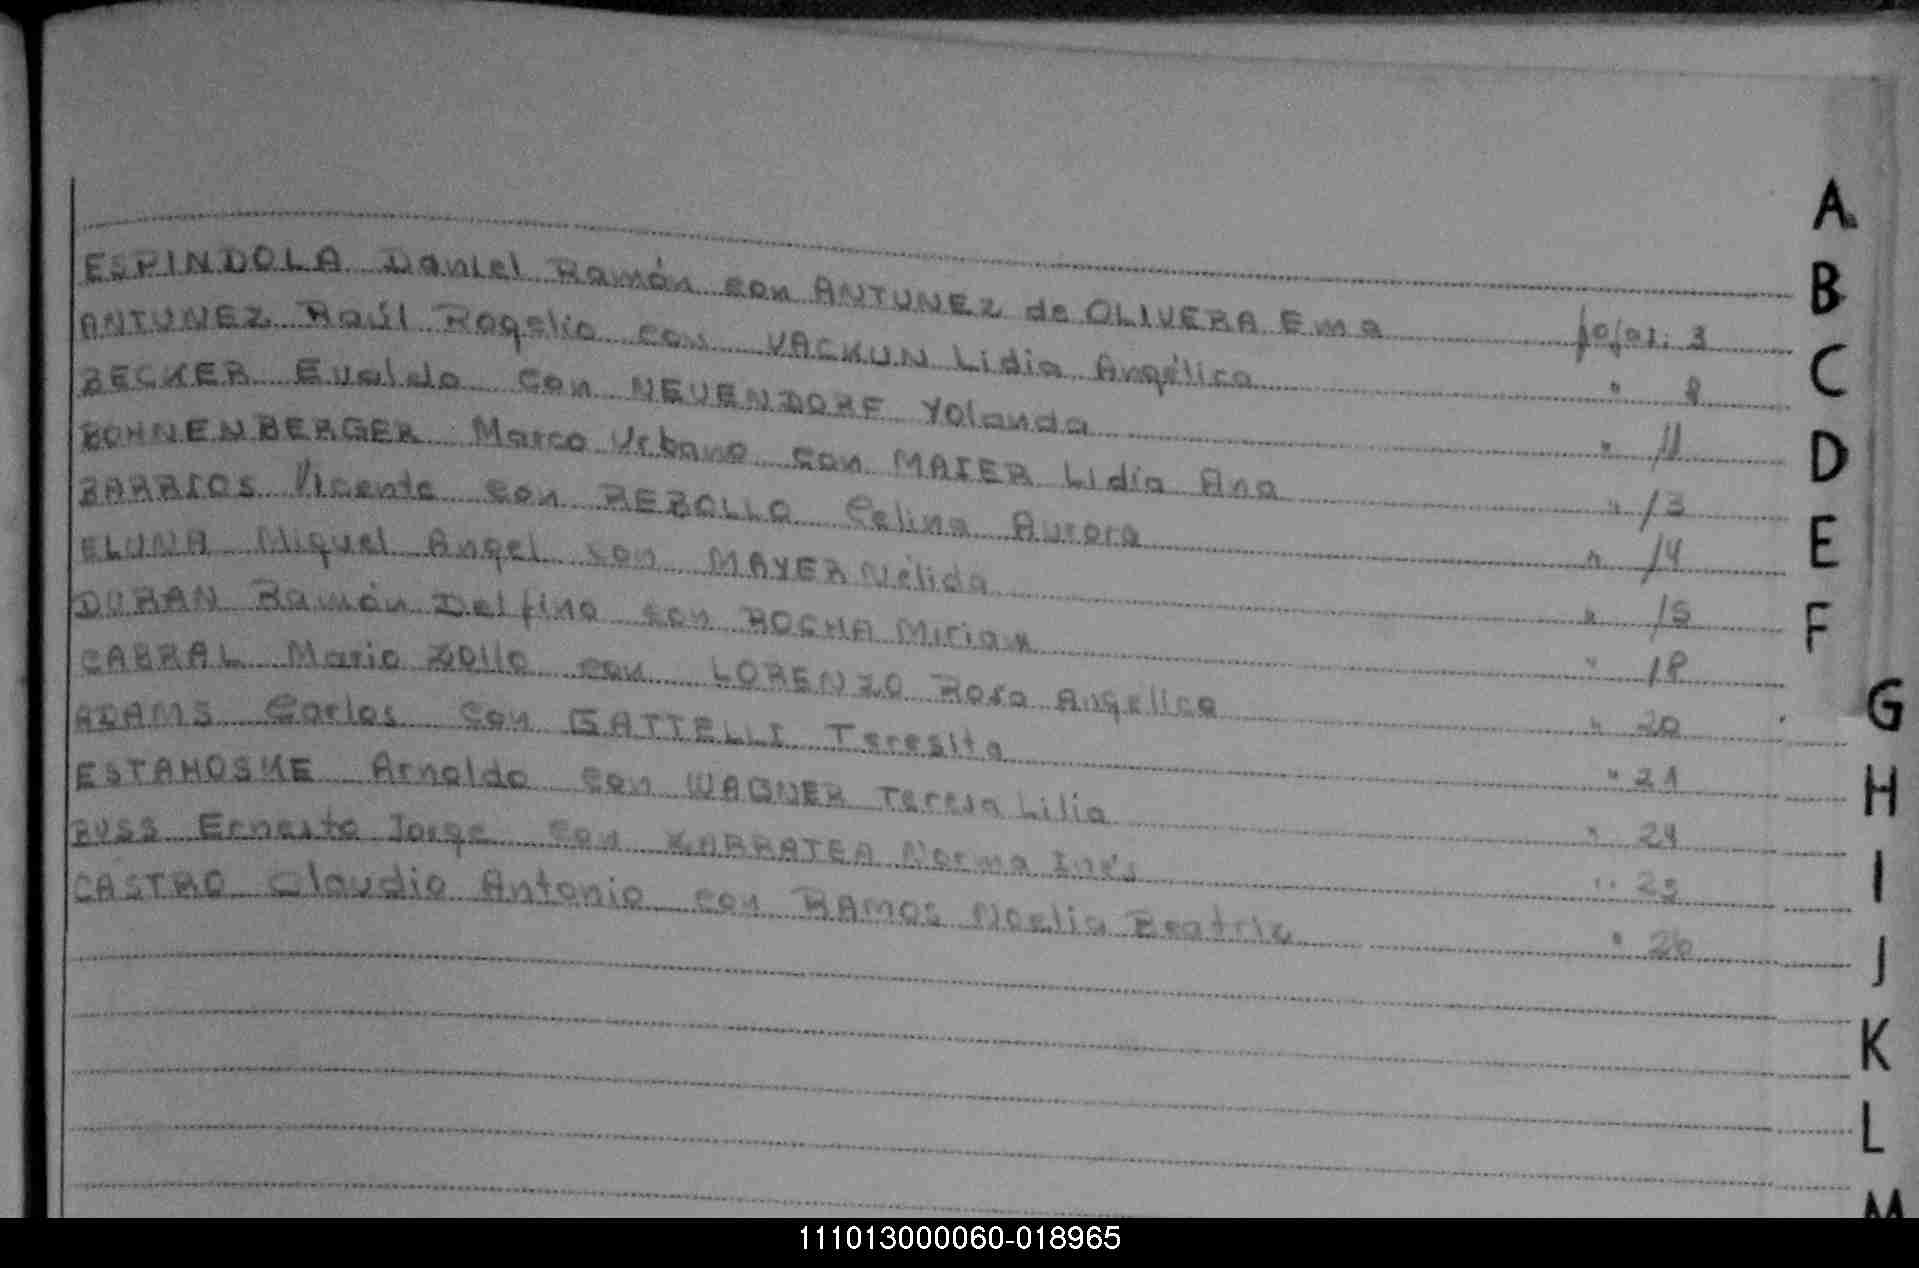 ESPINDOLA Daniel Ramón con ANTUNEZ de OLIVERA Ema fojas: 3
ANTUNEZ Raúl Rogelio con VACKUN Lidia Angélica " 8
BECKER Evaldo con NEUENDORF Yolanda " 11
BOHNENBERGER Marco Urbano con MAIER Lidia Ana " 13
BARRIOS Vicente con REBOLLO Celina Aurora " 14
ELUNA Miguel Angel con MAYER Nélida " 15
DURAN Ramón Delfino con ROCHA Miriam " 18
CABRAL Mario con LORENZO Rosa Angélica " 20
ADAMS Carlos con GATTELLI Teresita " 21
ESTAHOSKE Arnoldo con WAGNER Teresa Lilia " 24
BUSS Ernesto Jorge con ZARRATEA Norma Inés " 25
CASTRO Claudio Antonio con RAMOS Noelia Beatriz " 26
A
B
C
D
E
F
G
H
I
J
K
L
M
111013000060-018965